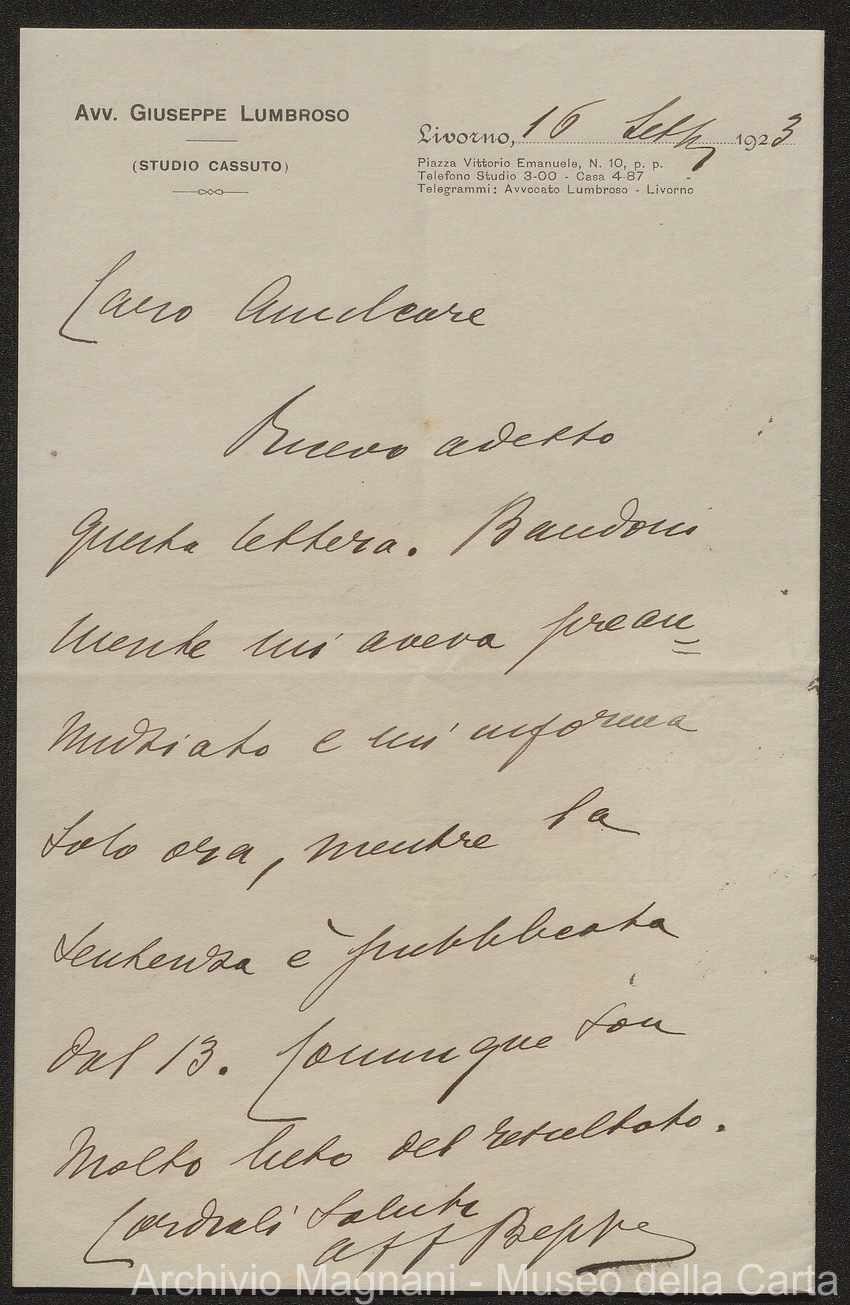 AVV. GIUSEPPE LUMBROSO
(STUDIO CASSUTO)
Livorno, 16 Sett 1923
Piazza Vittorio Emanuele, N. 10, p. p.
Telefono Studio 3-00 - Casa 4-87
Telegrammi: Avvocato Lumbroso - Livorno
Caro Amilcare
Ricevo adesso
questa lettera. Bandoni
mente mi aveva prean
nunziato e mi informa
solo ora, mentre la
sentenza è pubblicata
dal 13. Comunque son
molto lieto del resultato.
Cordiali saluti
aff Beppe
Archivio Magnani - Museo della Carta